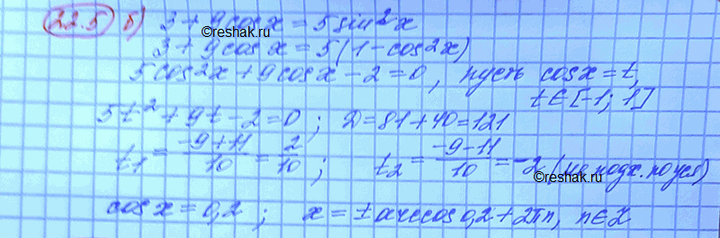 22.5 б) 3 + 9cosx = 5sin²x
3 + 9cosx = 5(1 - cos²x)
5cos²x + 9cosx - 2 = 0, пусть cosx = t,
t ∈ [-1; 1]
5t² + 9t - 2 = 0; D = 81 + 40 = 121
t₁ = (-9+11)/10 = 2/10; t₂ = (-9-11)/10 = -2 (не подх. по усл)
cosx = 0,2; x = ± arccos0,2 + 2πn, n ∈ Z